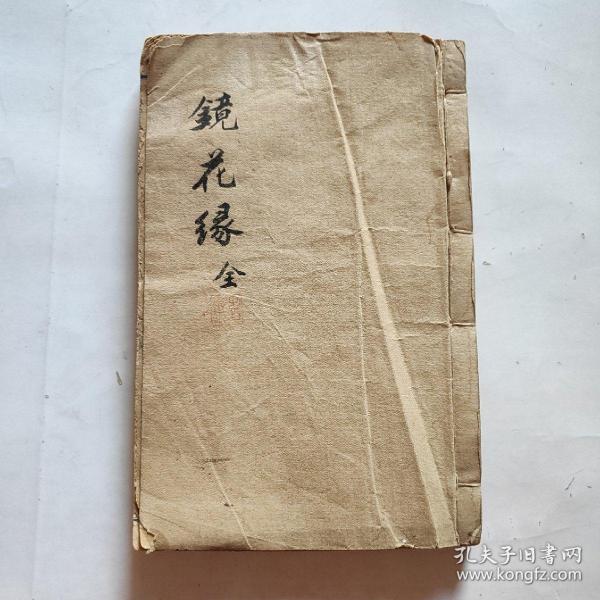 鏡花缘全
孔夫子旧書网
www.kongfz.com